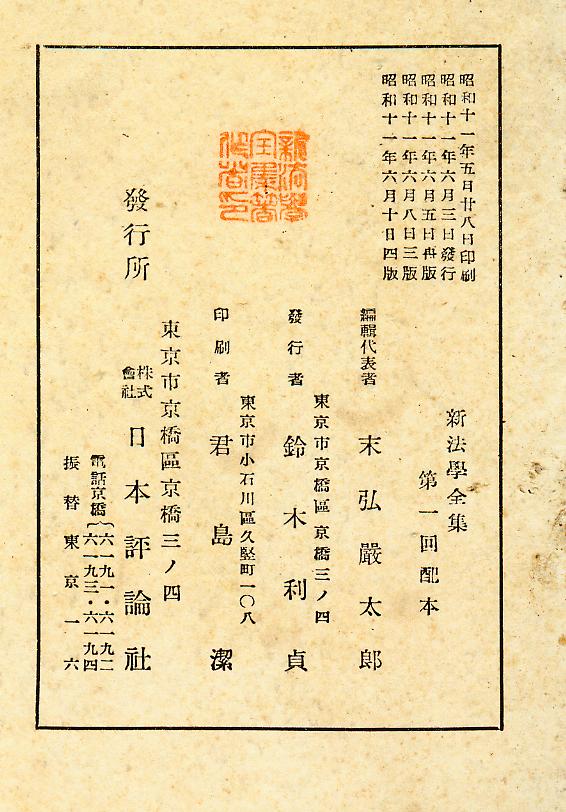 昭和十一年五月廿八日印刷
昭和十一年六月三日發行
昭和十一年六月五日再版
昭和十一年六月八日三版
昭和十一年六月十日四版
新法學全集
第一回配本
編輯代表者 末弘嚴太郎
東京市京橋區京橋三ノ四
發行者 鈴木利貞
東京市小石川區久堅町一〇八
印刷者 君島潔
東京市京橋區京橋三ノ四
發行所 株式會社 日本評論社
電話京橋 六一九一・六一九二
六一九三・六一九四
振替東京一六